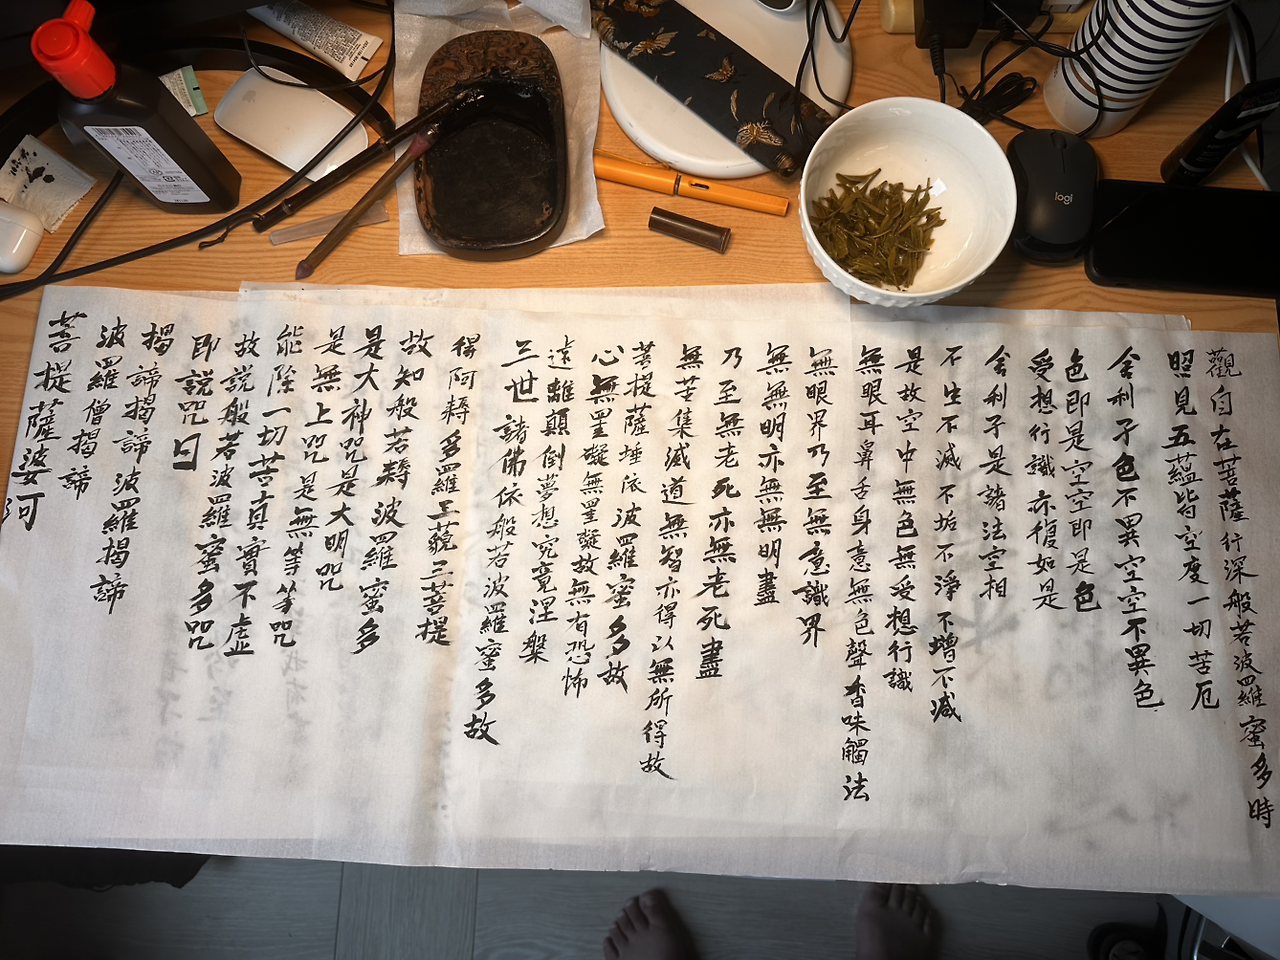 觀自在菩薩行深般若波羅蜜多時
照見五蘊皆空度一切苦厄
舍利子色不異空空不異色
色即是空空即是色
受想行識亦復如是
舍利子是諸法空相
不生不滅不垢不淨不增不減
是故空中無色無受想行識
無眼耳鼻舌身意無色聲香味觸法
無眼界乃至無意識界
無無明亦無無明盡
乃至無老死亦無老死盡
無苦集滅道無智亦得以無所得故
菩提薩埵依波羅蜜多故
心無罣礙無罣礙故無有恐怖
遠離顛倒夢想究竟涅槃
三世諸佛依般若波羅蜜多故
得阿耨多羅三藐三菩提
故知般若耨波羅蜜多
是大神咒是大明咒
是無上咒是無等等咒
能除一切苦真實不虛
故說般若波羅蜜多咒
即說咒曰
揭諦揭諦波羅揭諦
波羅僧揭諦
菩提薩婆訶
logi